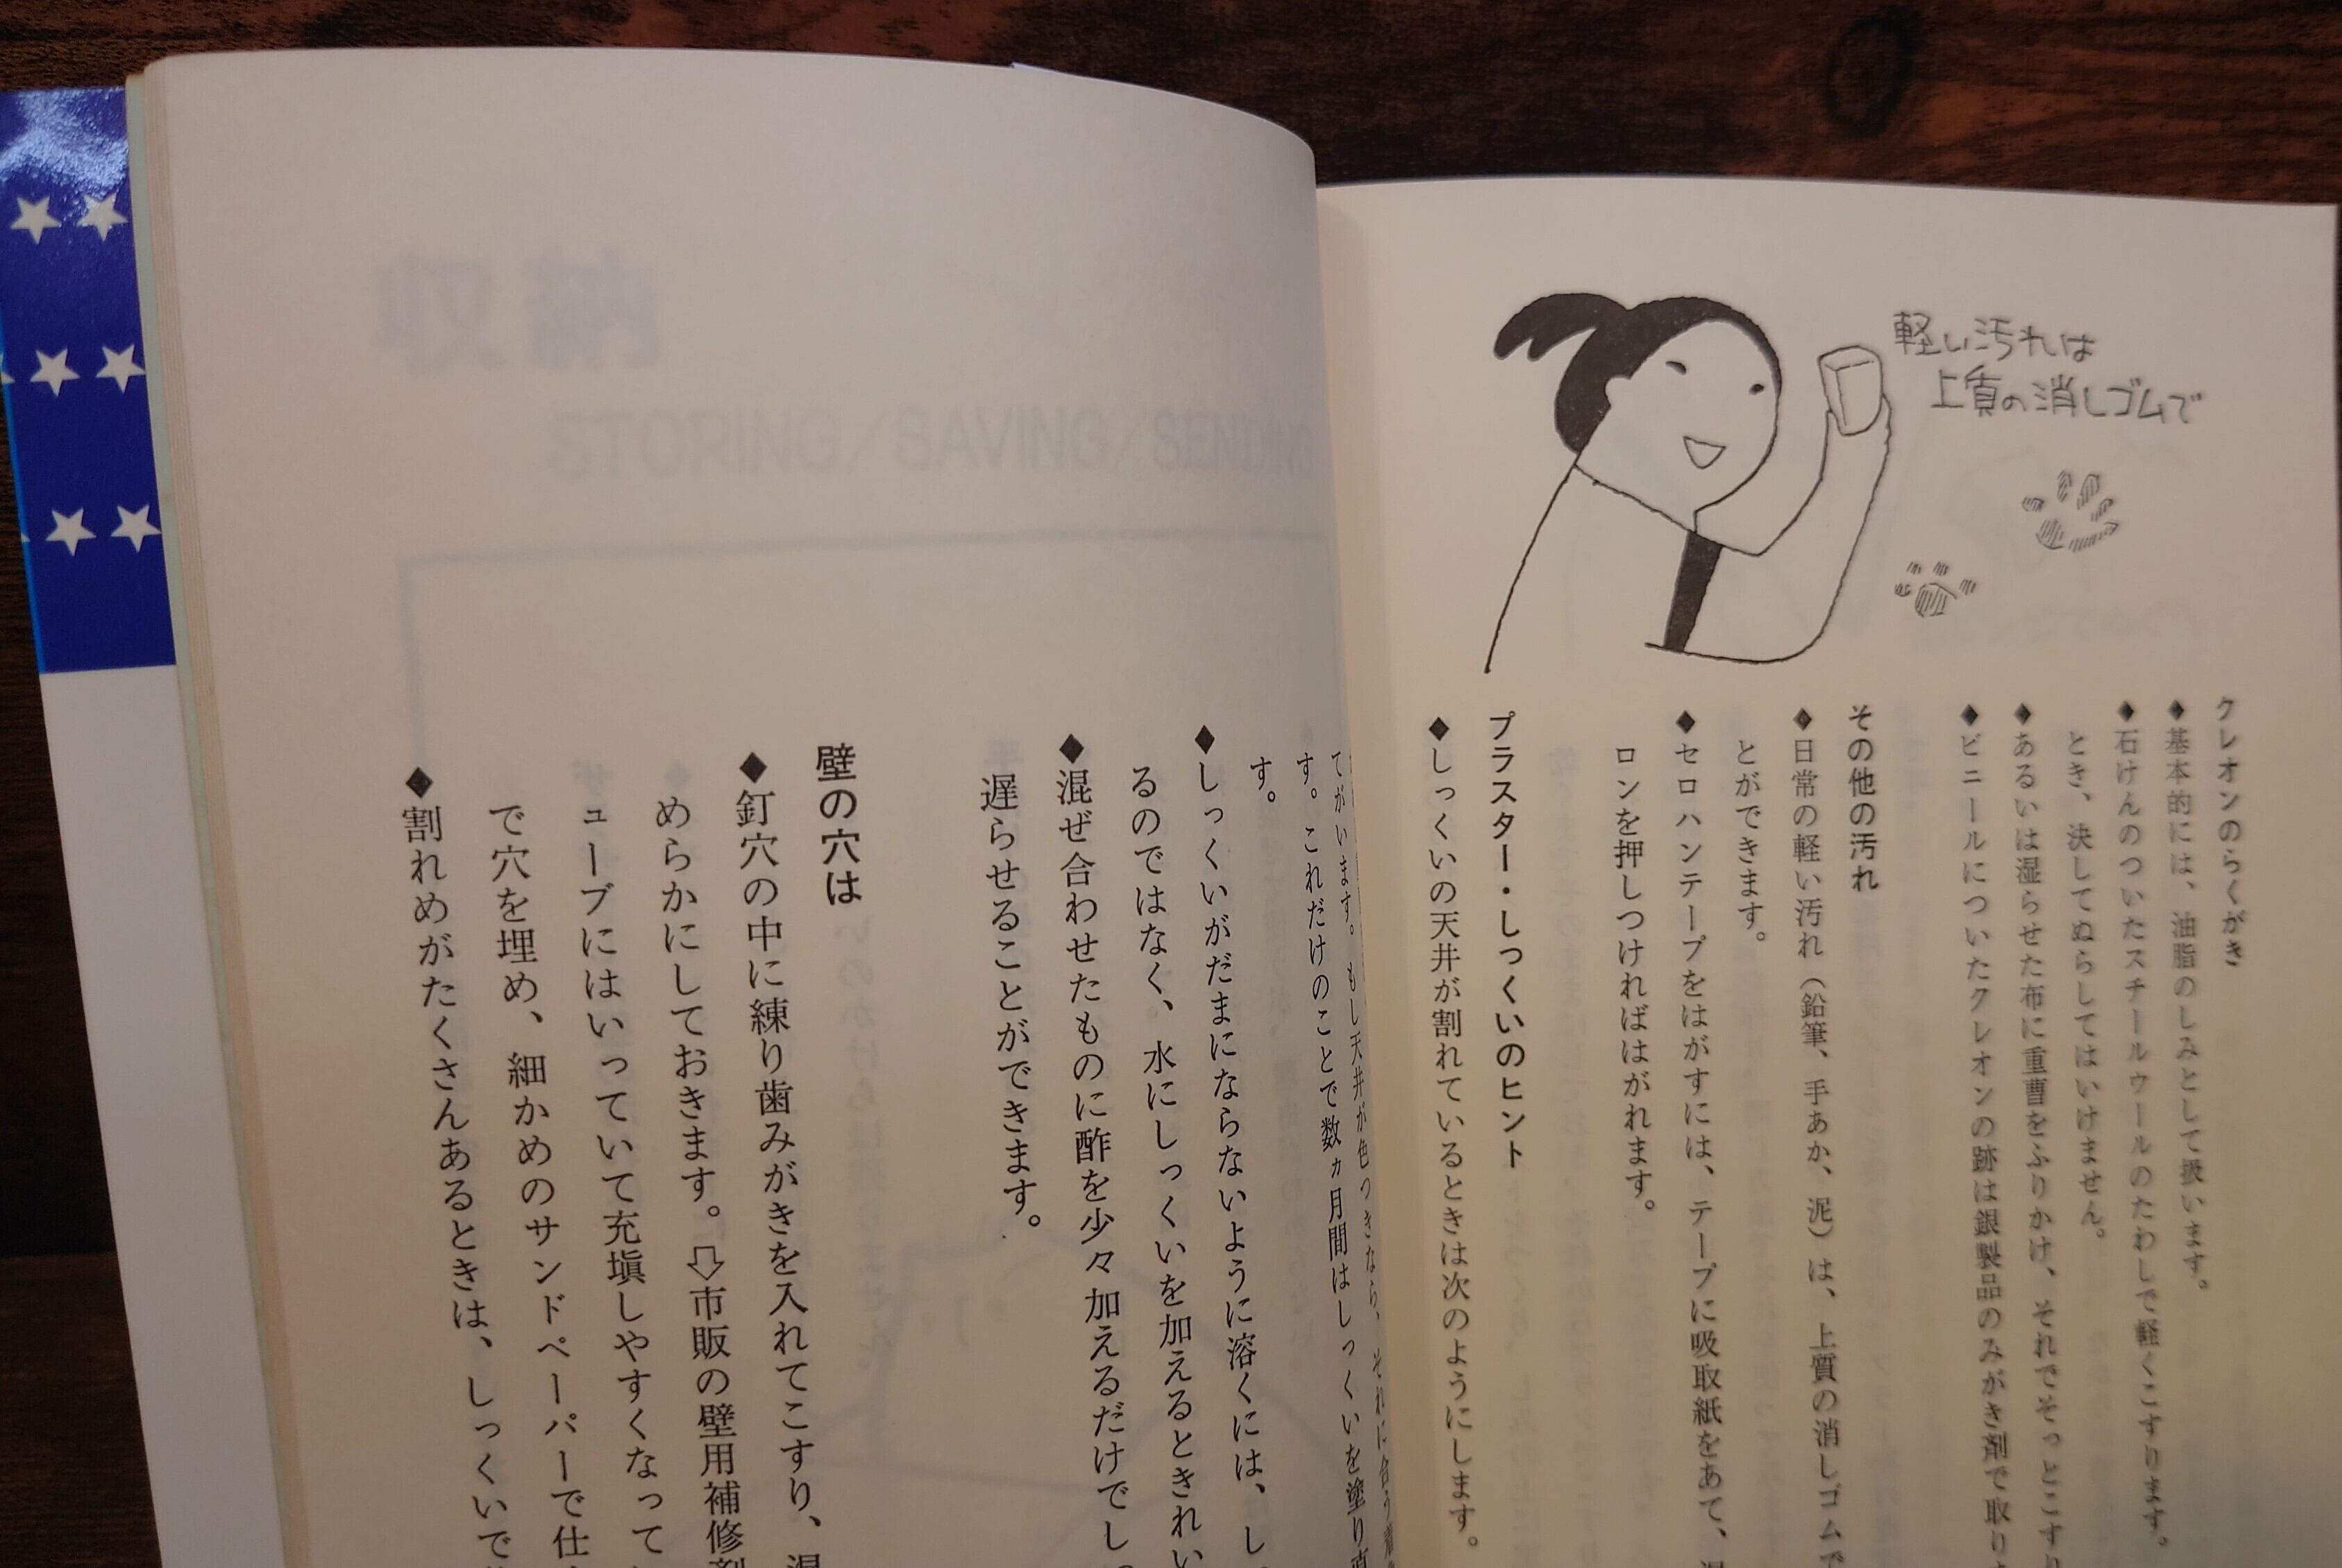 軽い汚れは
上質の消しゴムで
クレオンのらくがき
◆基本的には、油脂のしみとして扱います。
◆石けんのついたスチールウールのたわしで軽くこすります。
とき、決してぬらしてはいけません。
◆あるいは湿らせた布に重曹をふりかけ、それでそっとこすり
◆ビニールについたクレオンの跡は銀製品のみがき剤で取り
その他の汚れ
◆日常の軽い汚れ（鉛筆、手あか、泥）は、上質の消しゴムで
とができます。
◆セロハンテープをはがすには、テープに吸取紙をあて、
ロンを押しつければはがれます。
プラスター・しっくいのヒント
◆しっくいの天井が割れているときは次のようにします。
てがいます。もし天井が色つきなら、それに合う
す。これだけのことで数ヵ月間はしっくいを塗り
す。
◆しっくいがだまにならないように溶くには、し
るのではなく、水にしっくいを加えるときれい
◆混ぜ合わせたものに酢を少々加えるだけでし
遅らせることができます。
壁の穴は
◆釘穴の中に練り歯みがきを入れてこすり、
めらかにしておきます。⇩市販の壁用補修剤
ューブにはいっていて充塡しやすくなって
で穴を埋め、細かめのサンドペーパーで仕
◆割れめがたくさんあるときは、しっくいで
収納
STORING/SAVING/SENDING